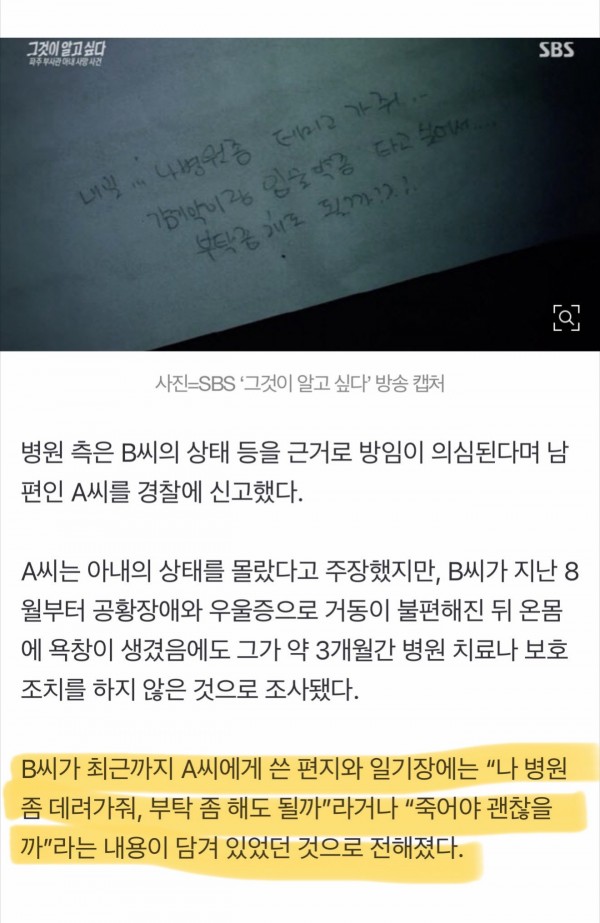 그것이 알고 싶다
파주 부사관 아내 사망 사건
SBS
나 병원좀 데리고 가줘...
부탁좀 해도 될까??!
사진=SBS ‘그것이 알고 싶다’ 방송 캡처
병원 측은 B씨의 상태 등을 근거로 방임이 의심된다며 남
편인 A씨를 경찰에 신고했다.
A씨는 아내의 상태를 몰랐다고 주장했지만, B씨가 지난 8
월부터 공황장애와 우울증으로 거동이 불편해진 뒤 온몸
에 욕창이 생겼음에도 그가 약 3개월간 병원 치료나 보호
조치를 하지 않은 것으로 조사됐다.
B씨가 최근까지 A씨에게 쓴 편지와 일기장에는 “나 병원
좀 데려가줘, 부탁 좀 해도 될까”라거나 “죽어야 괜찮을
까”라는 내용이 담겨 있었던 것으로 전해졌다.